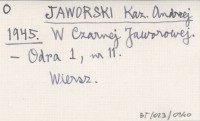 O
JAWORSKI Kaz. Andrzej
1945. W Czarnej Jaworowej.
– Odra 1, nr 11.
Wiersz.